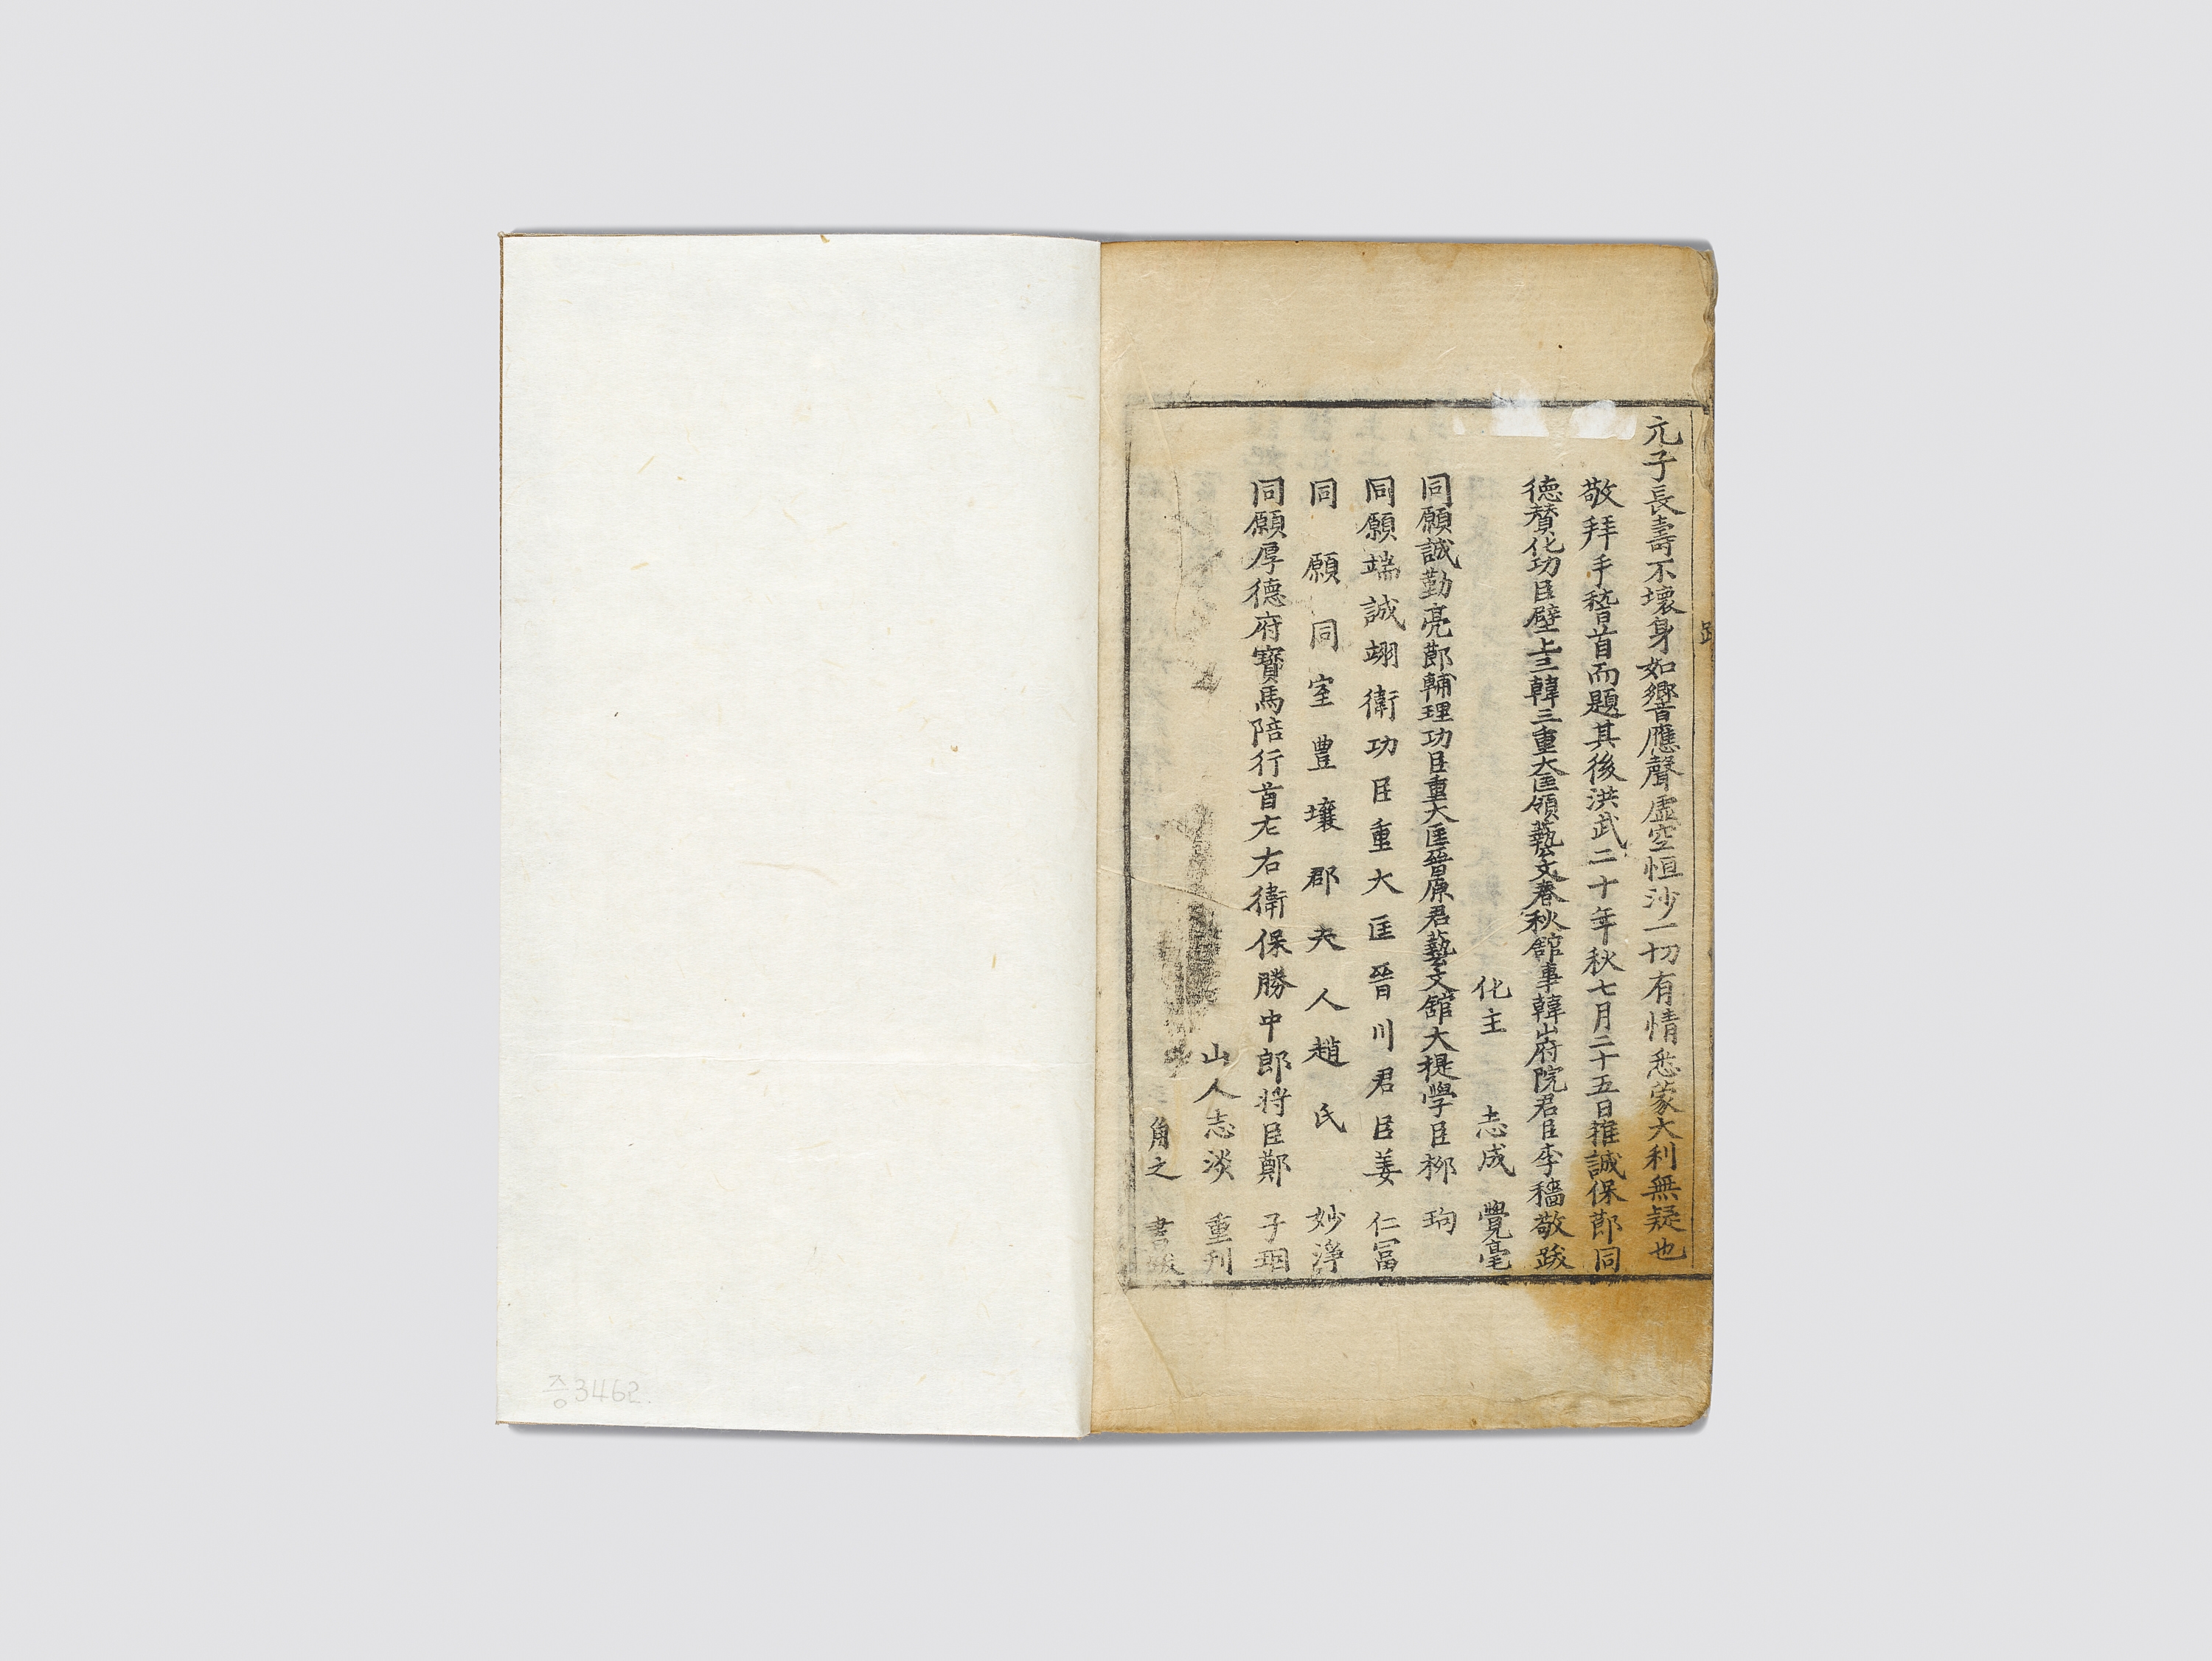 元子長壽不壞身如響應聲虛空恒沙一切有情悉蒙大利無疑也
敬拜手稽首而題其後洪武二十年秋七月二十五日推誠保節同
德贊化功臣壁上三韓三重大匡領藝文春秋館事韓山府院君臣李穡敬跋
化主 志成 覺毫
同願誠勤亮節輔理功臣重大匡晉原君藝文館大提學臣柳 珣
同願端誠翊衛功臣重大匡晉川君臣姜 仁冨
同 願 同 室 豊 壤 郡 夫 人 趙 氏 妙淨
同願厚德府寶馬陪行首左右衛保勝中郎將臣鄭 子
山人志淡 重刋
角之 書跋
증3462.